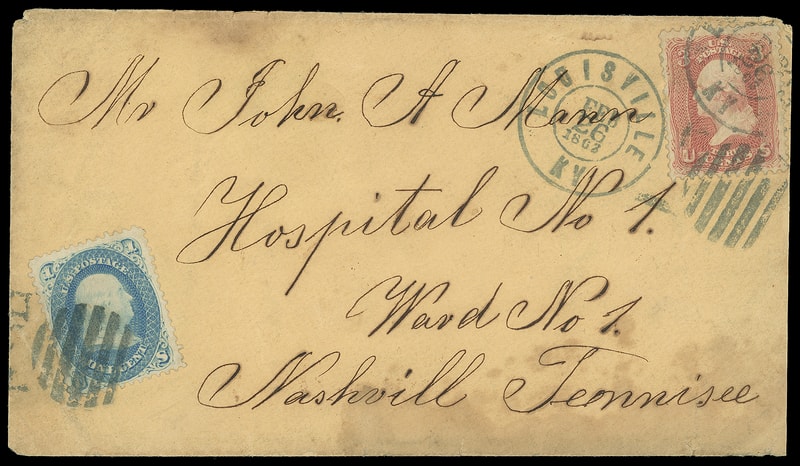 Mr John. A Mann
Hospital No 1.
Ward No 1.
Nashvill Tennisee
LOUISVILLE
FEB
26
1862
KY
U.S. POSTAGE
KY
U S
U.S. POSTAGE
ONE CENT